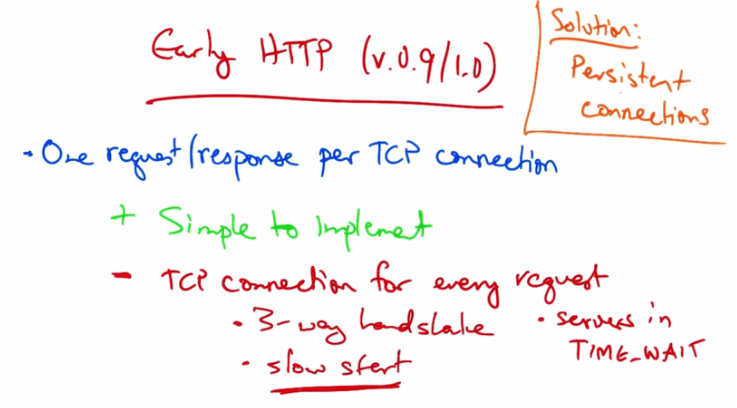 Early HTTP (v.0.9/1.0)
Solution:
Persistent
connections
• One request/response per TCP connection
+ Simple to Implement
- TCP connection for every request
• 3-way handshake
• slow start
• servers in
TIME_WAIT